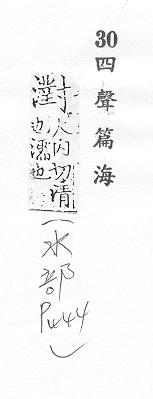 30四聲篇海
對火內切清
瀅也濡也
(水部
P444)